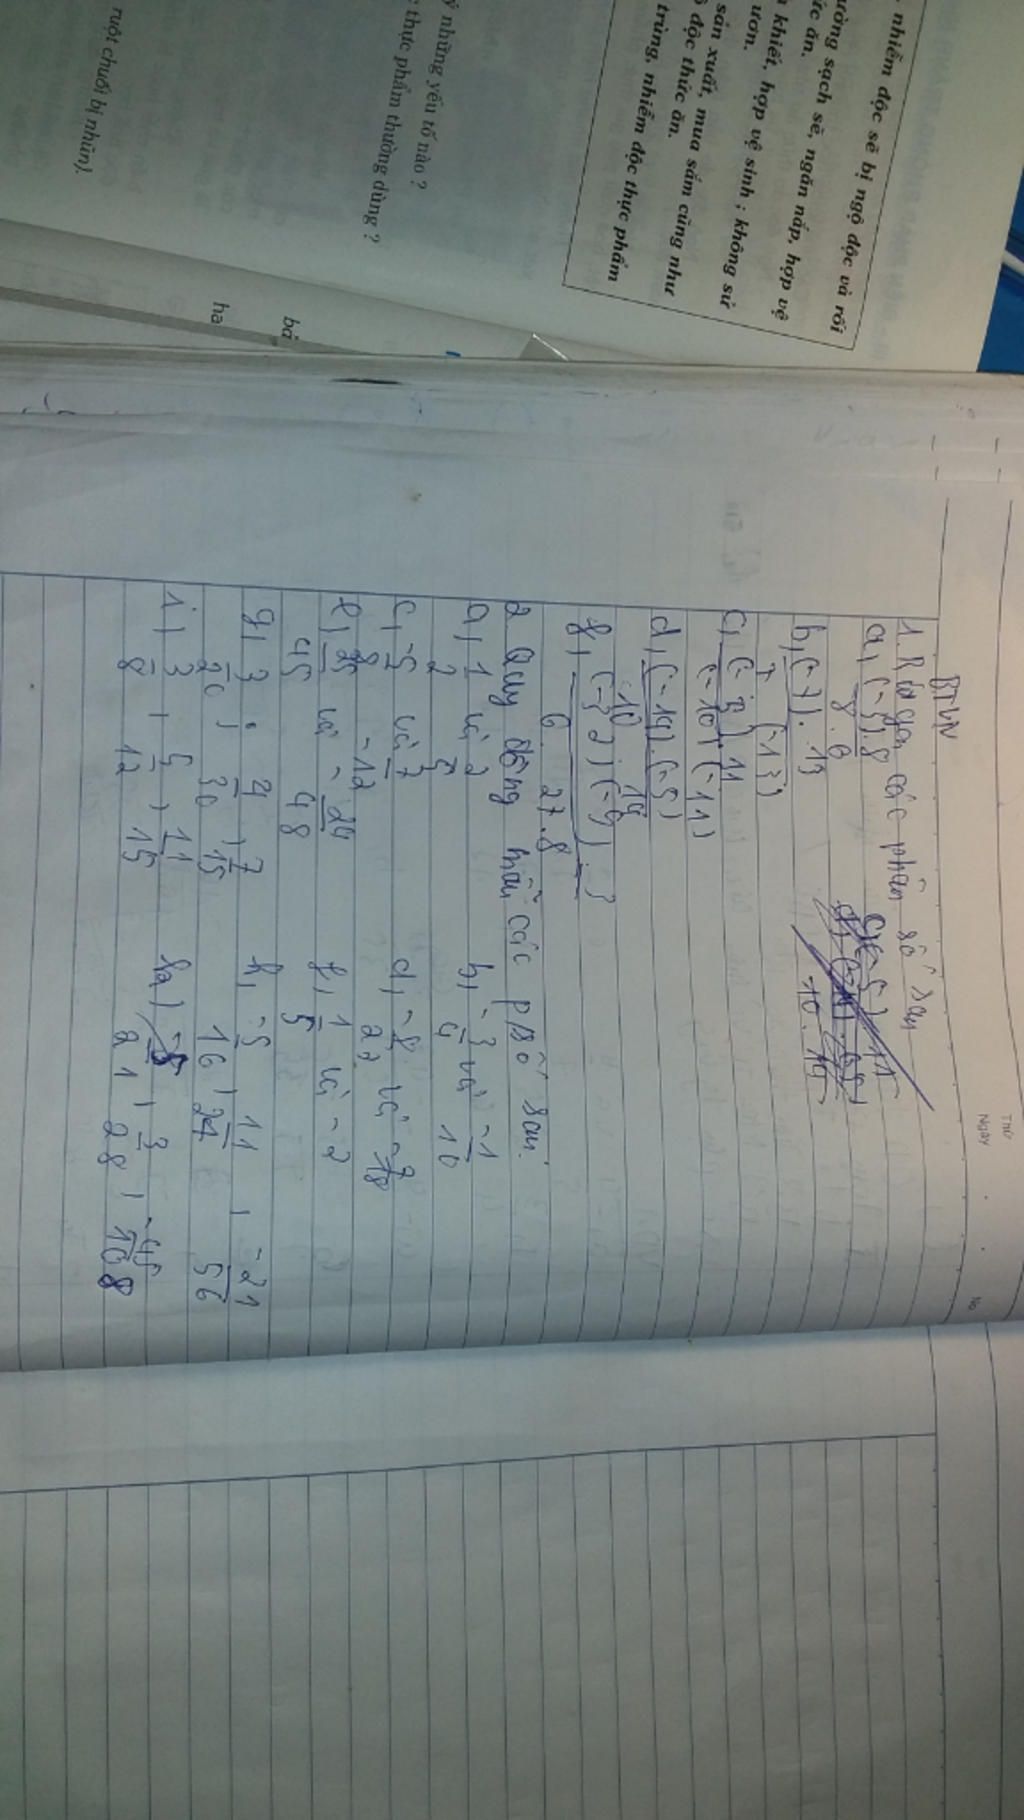 nhiễm độc sẽ bị ngộ độc và rối
ường sạch sẽ, ngăn nắp, hợp vệ
ức ăn.
khiết, hợp vệ sinh ; không sử
ươn.
sản xuất, mua sắm cũng như
độc thức ăn.
trùng, nhiễm độc thực phẩm
ý những yếu tố nào ?
thực phẩm thường dùng ?
ruột chuối bị nhũn).
bả
ha
THỨ
NGÀY
No
BTVN
1. Rút gọn các phân số sau
a, (-3).8
8.6
b, (-7).13
7 (-13)
c, (-3).11
(-10)(-11)
d, (-14).(-5)
10 14
6.27.8
2. Quy đồng mẫu các p số sau:
a, 1/2 và 2/5
b, -3/4 và -1/10
c, -5/8 và 7/-12
e, 25/45 và -24/48
f, 1/5 và -2
g, 3/20, 4/30, 7/15
h, -5/16, 11/24, -21/56
i, 3/8, 5/12, 11/15